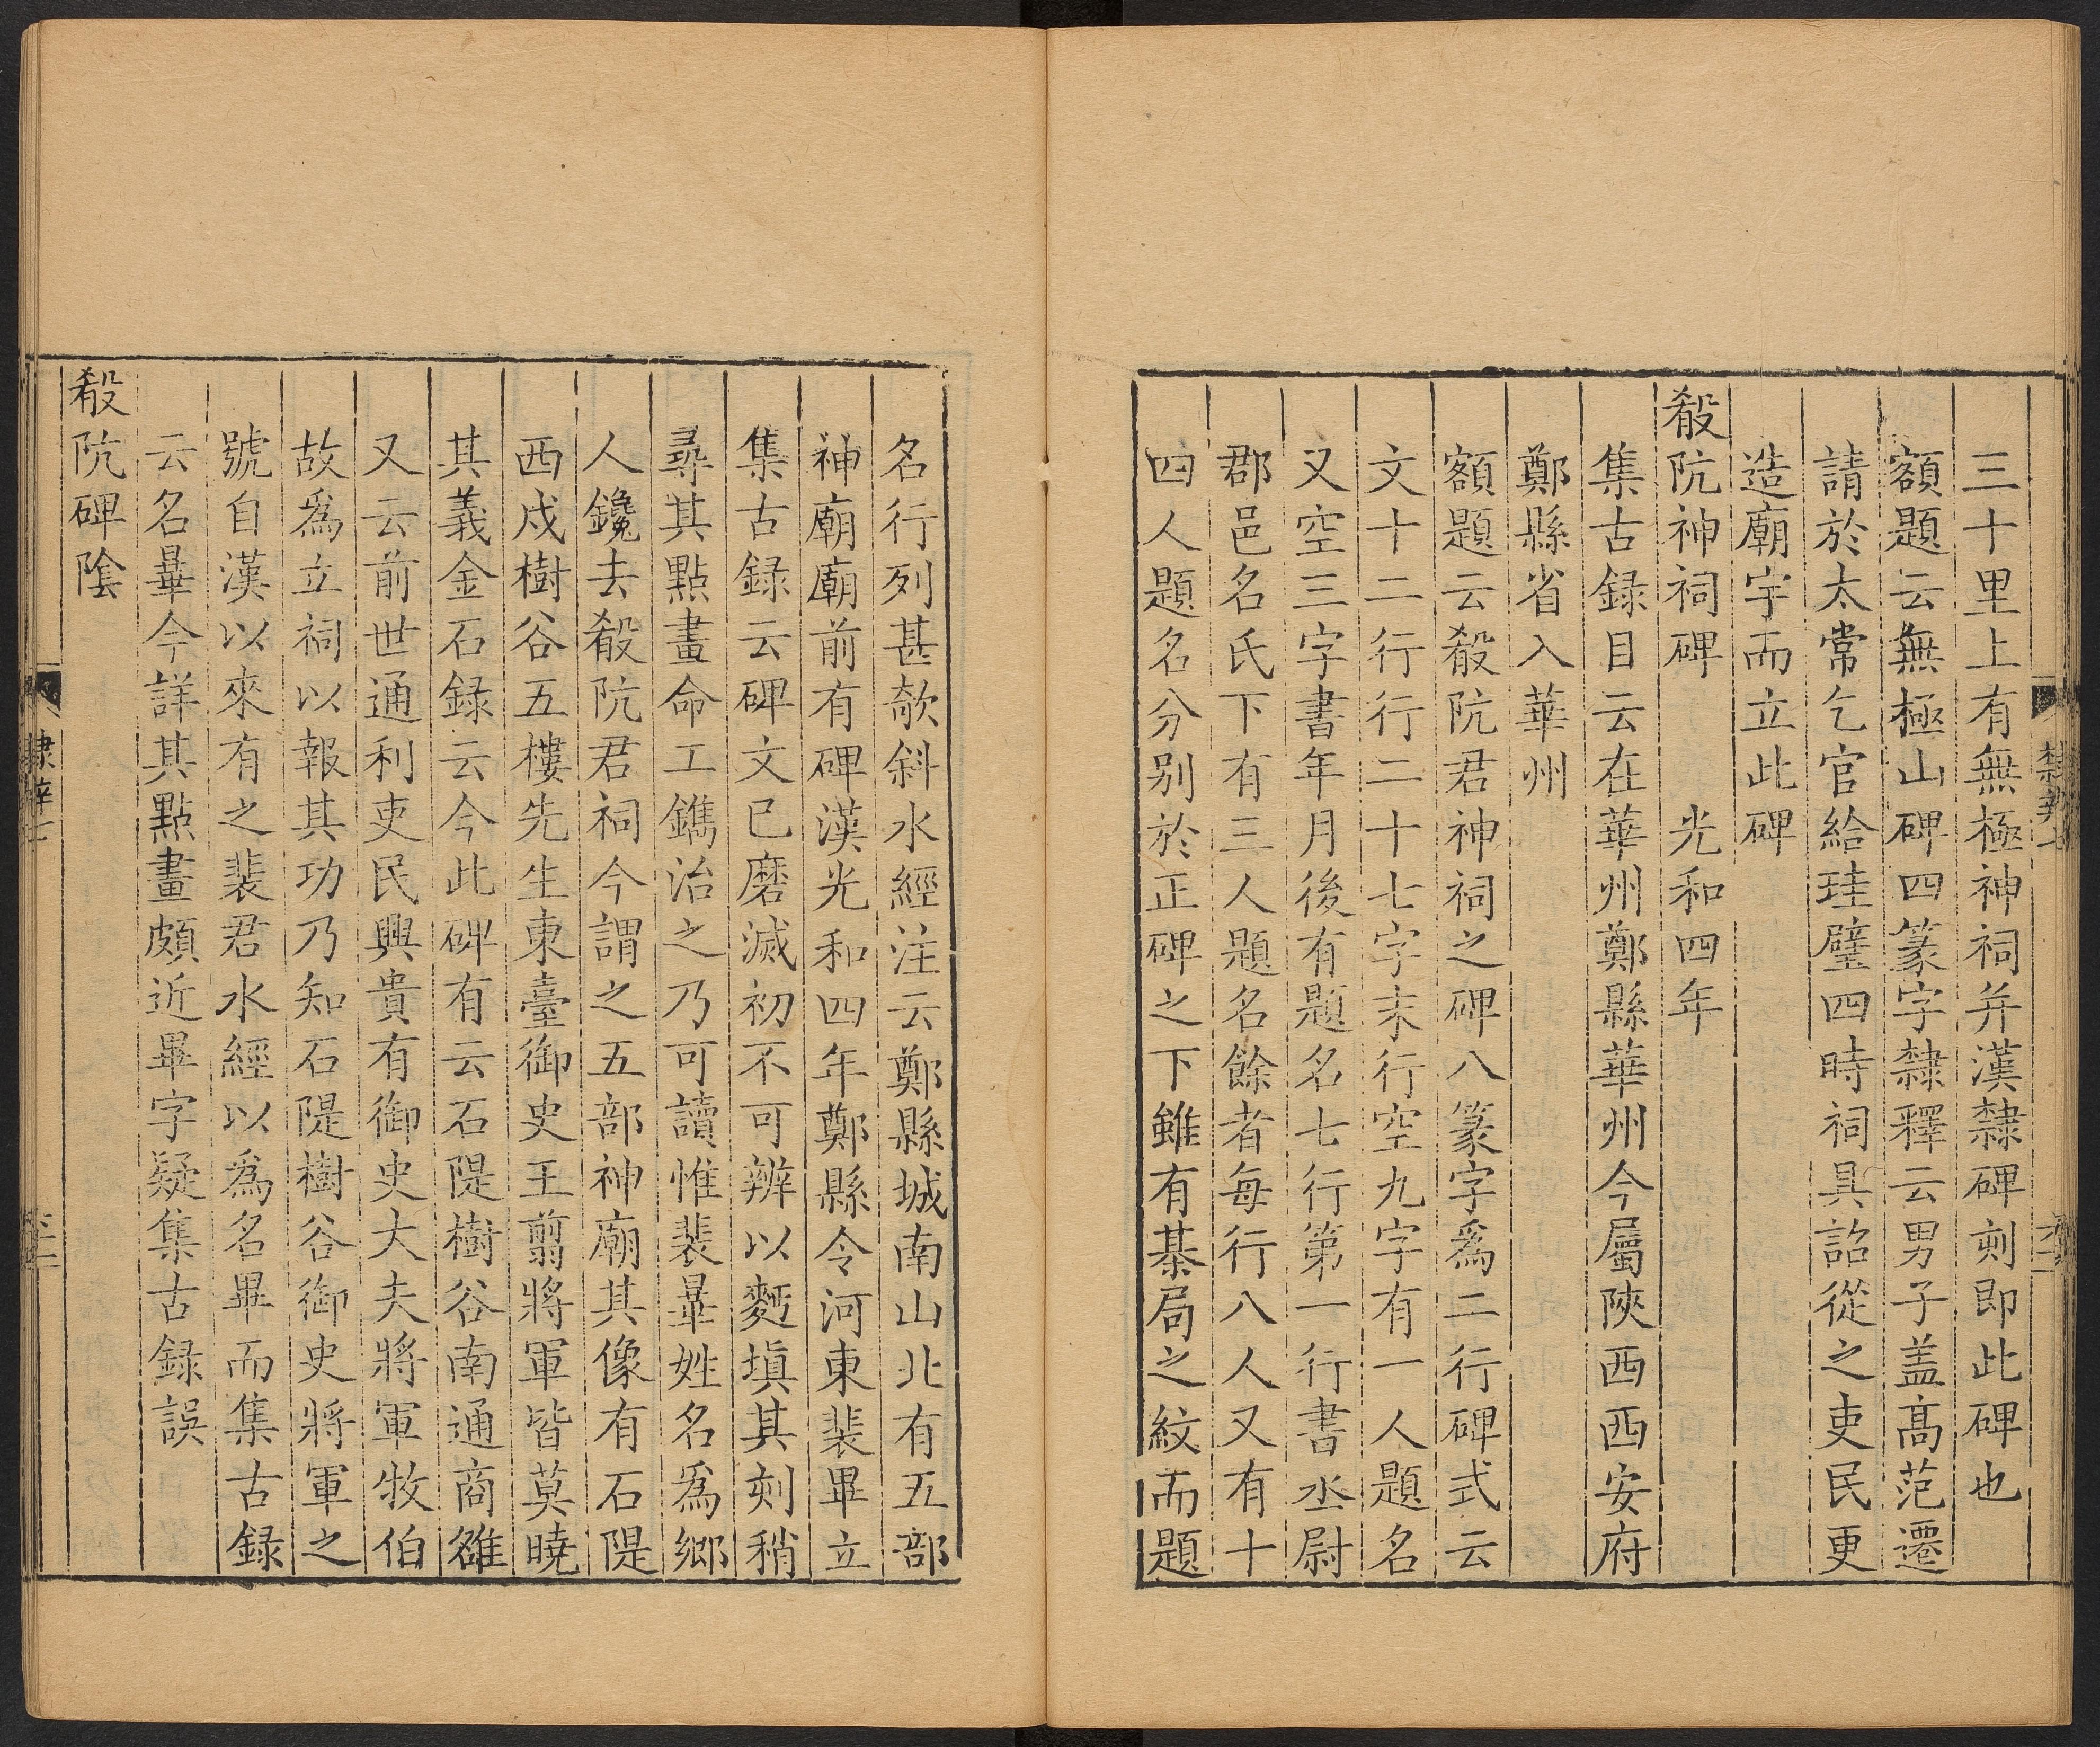 三十里上有無極神祠并漢隸碑刻即此碑也
額題云無極山碑四篆字隸釋云男子盖高范遷
請於太常乞官給珪璧四時祠具詔從之吏民更
造廟宇而立此碑
殽阬神祠碑 光和四年
集古錄目云在華州鄭縣華州今屬陝西西安府
鄭縣省入華州
額題云殽阬君神祠之碑八篆字爲二行碑式云
文十二行行二十七字末行空九字有一人題名
又空三字書年月後有題名七行第一行書丞尉
郡邑名氏下有三人題名餘者每行八人又有十
四人題名分别於正碑之下雖有棊局之紋而題
名行列甚欹斜水經注云鄭縣城南山北有五部
神廟廟前有碑漢光和四年鄭縣令河東裴畢立
集古錄云碑文已磨滅初不可辨以麪塡其刻稍
尋其點畫命工鐫治之乃可讀惟裴畢姓名爲鄉
人鑱去殽阬君祠今謂之五部神廟其像有石隄
西戍樹谷五樓先生東臺御史王翦將軍皆莫曉
其義金石錄云今此碑有云石隄樹谷南通商雒
又云前世通利吏民興貴有御史大夫將軍牧伯
故爲立祠以報其功乃知石隄樹谷御史將軍之
號自漢以來有之裴君水經以爲名畢而集古錄
云名畢今詳其點畫頗近畢字疑集古錄誤
殽阬碑陰
隸辨七